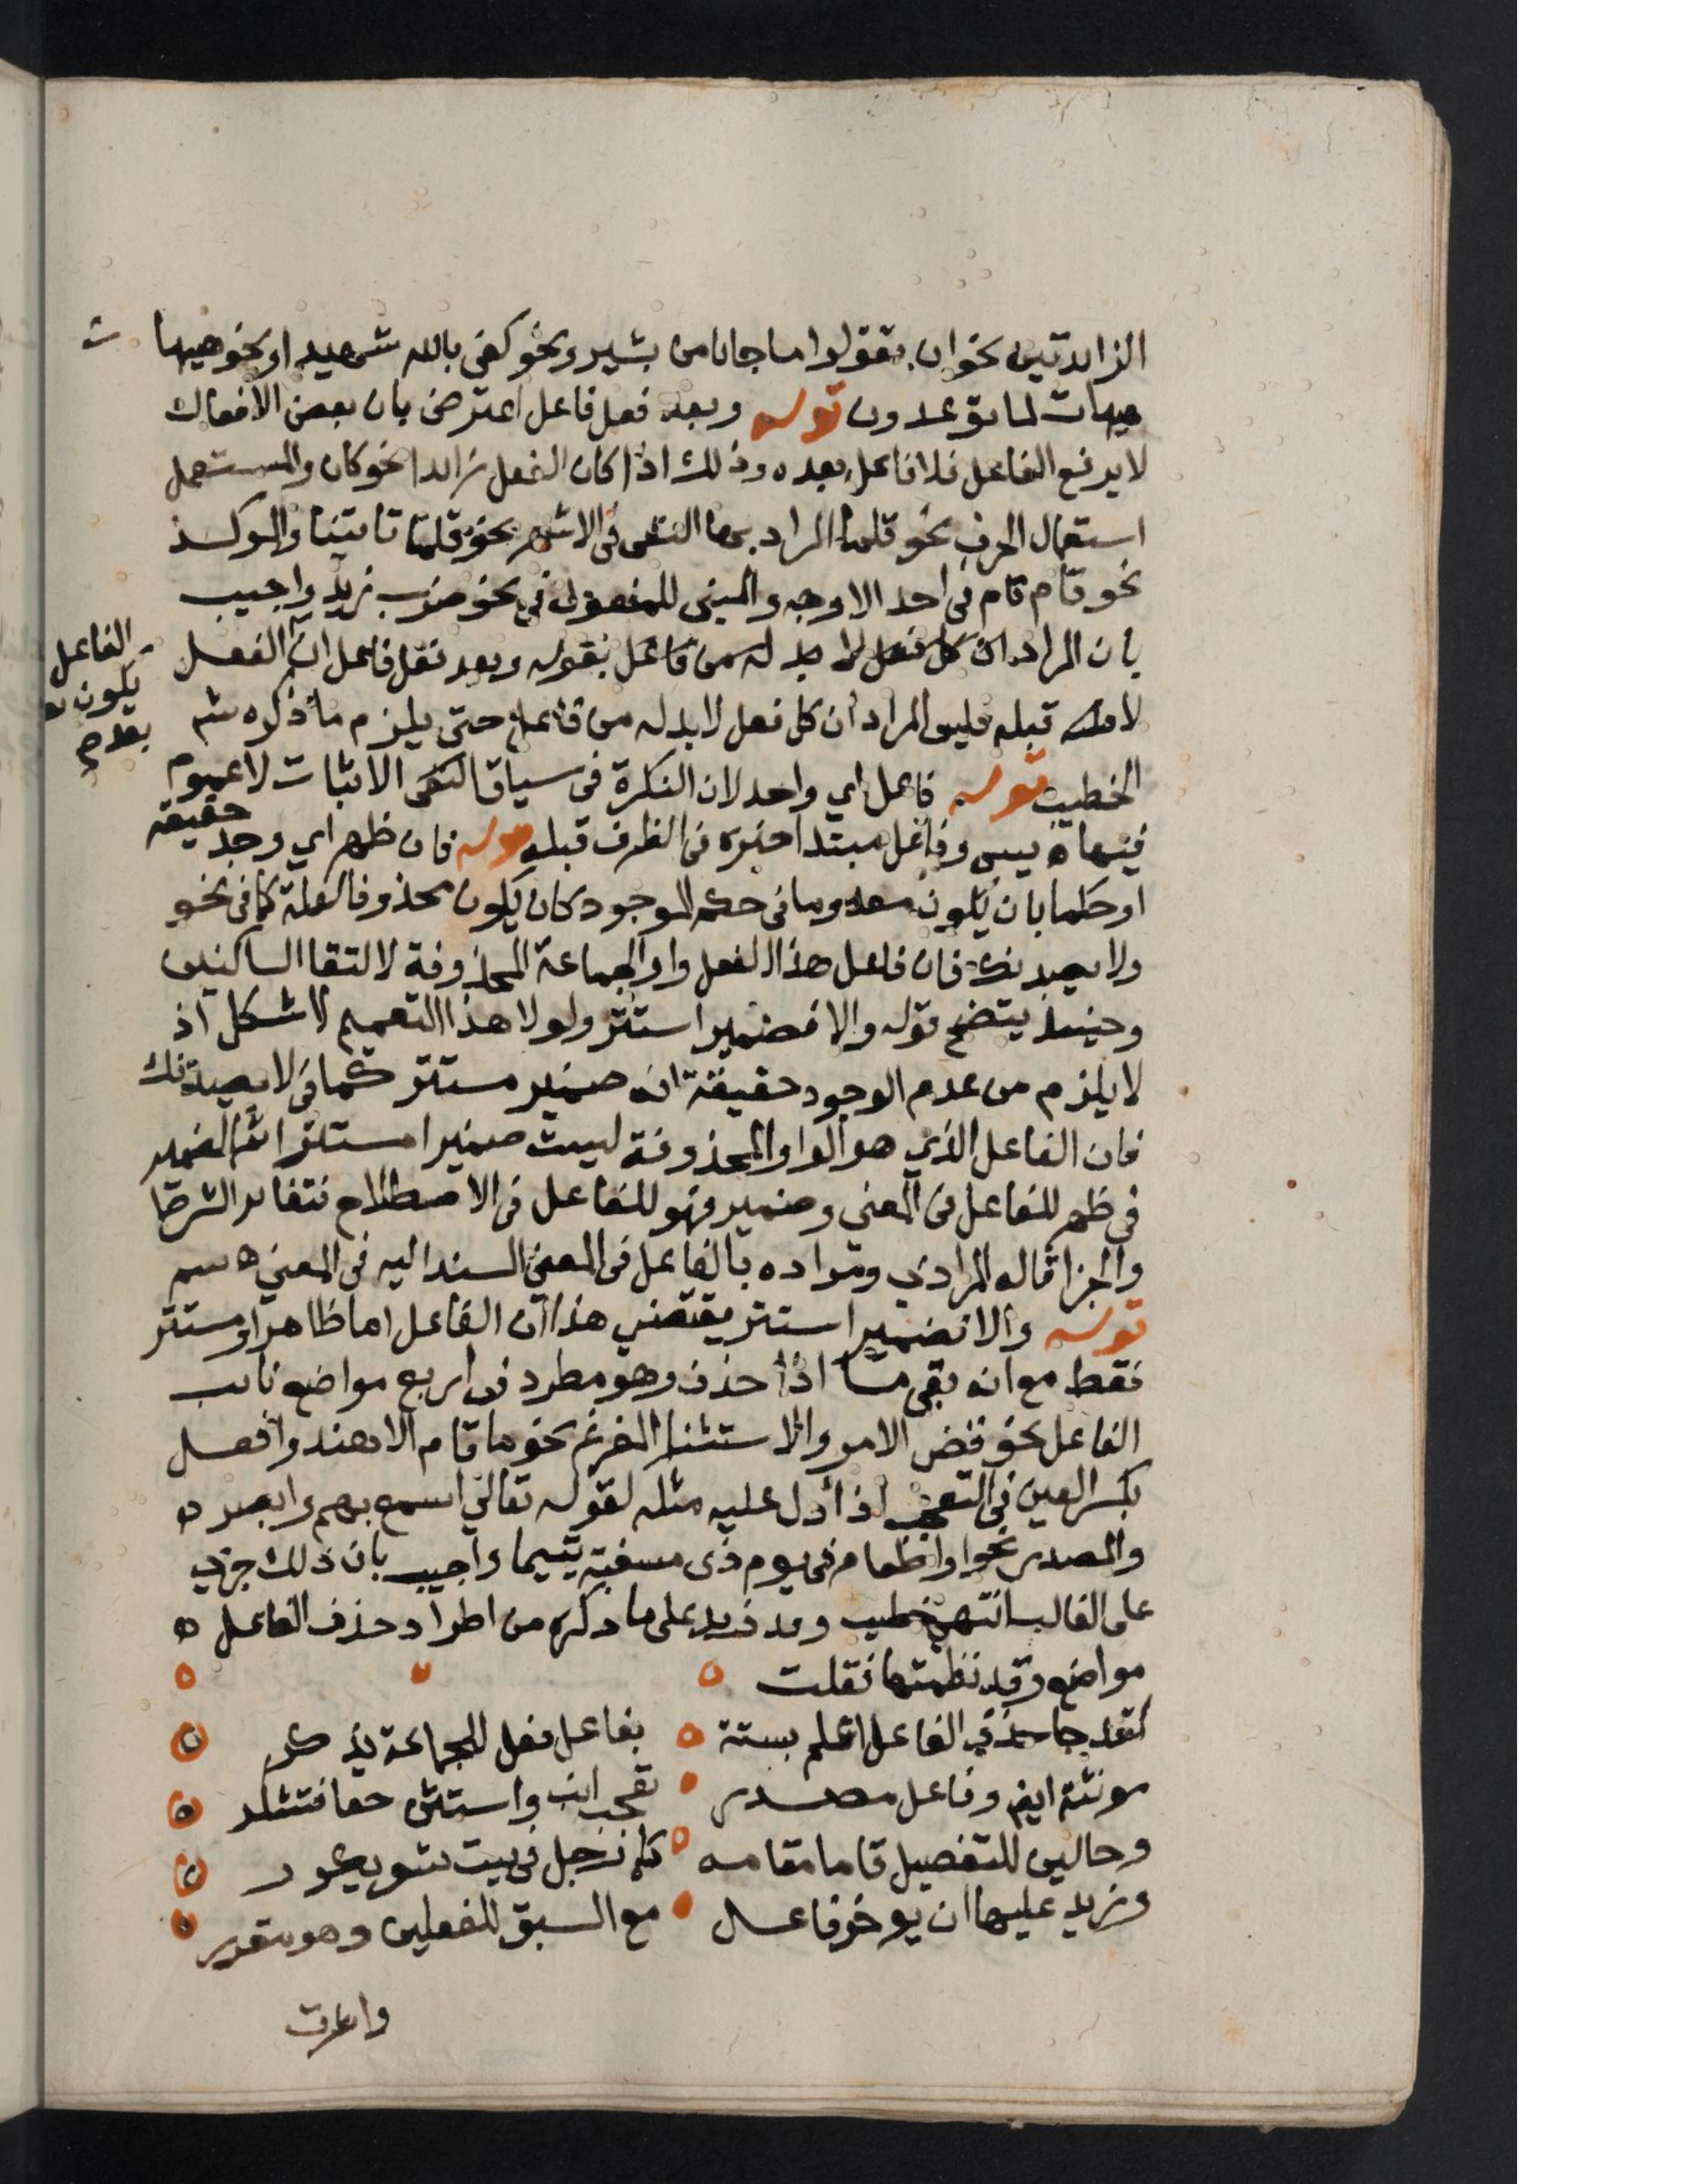 الزائدتين نحو ان تقولوا ما جانا من بشير ونحو كفى بالله شهيدا ونحو هيهات
هيهات لما توعدون قوله وبعد فعل فاعل اعترض بان بعض الافعال
لا يرفع الفاعل فلا فاعل بعده وذلك اذا كان الفعل زائدا نحو كان والمستعمل
استعمال الحرف نحو قلما المراد بها النفى فى الاشهر نحو قلما تاتينا والموكد
نحو قام قام فى احد الاوجه والمبنى للمفعول فى نحو ضرب زيد واجيب
بان المراد ان كل فعل لا بد له من فاعل بقوله وبعد فعل فاعل ان الفعل
الفاعل
يكون
بعده
لا قبله فليس المراد ان كل فعل لابد له من فاعل حتى يلزم ما ذكره
الخطيب قوله فاعل اي واحد لان النكرة فى سياق الاثبات لا عموم
فيها ه يس وفاعل مبتدا خبره فى الظرف قبله قوله فان ظهر اي وجد حقيقة
او حكما بان يكون معدوما فى حكم الموجود كان يكون محذوفا لعلة كما فى نحو
ولا يصدنك فان فاعل هذا الفعل واو الجماعة المحذوفة لالتقا الساكنين
وحينئذ يتضح قوله والا فضمير استتر ولولا هذا التعميم لاشكل اذ
لا يلزم من عدم الوجود حقيقة انه ضمير مستتر كما فى لا يصدنك
فان الفاعل الذي هو الواو المحذوفة ليست ضميرا مستترا ثم الضمير
فى ظهر للفاعل فى المعنى وضمير فهو للفاعل فى الاصطلاح فتغاير الشرط
والجزا قاله المرادي ومراده بالفاعل فى المعنى المسند اليه فى المعنى ه سم
قوله والا فضمير استتر يقتضى هذا ان الفاعل اما ظاهر او مستتر
فقط مع انه بقى ما اذا حذف وهو مطرد فى اربع مواضع نائب
الفاعل نحو قضى الامر والاستثنا المفرغ نحو ما قام الا هند وافعل
بكسر العين فى التعجب اذا دل عليه مثله لقوله تعالى اسمع بهم وابصر ه
والمصدر نحو او اطعام فى يوم ذى مسغبة يتيما واجيب بان ذلك جري
على الغالب انتهى خطيب وقد زيد على ما ذكره من اطراد حذف الفاعل ه
مواضع وقد نظمتها فقلت
لقد جا حذف الفاعل اعلم بستة بفاعل فعل للجماعة يذكر
مونثة ايضا وفاعل مصدر تعجب انب واستثن حقا فتشكر
وحالين للتفصيل قاما مقامه كان رجل فى بيت شعر
وزيد عليها ان يوخر فاعل مع السبق للفعلين وهو مقرر